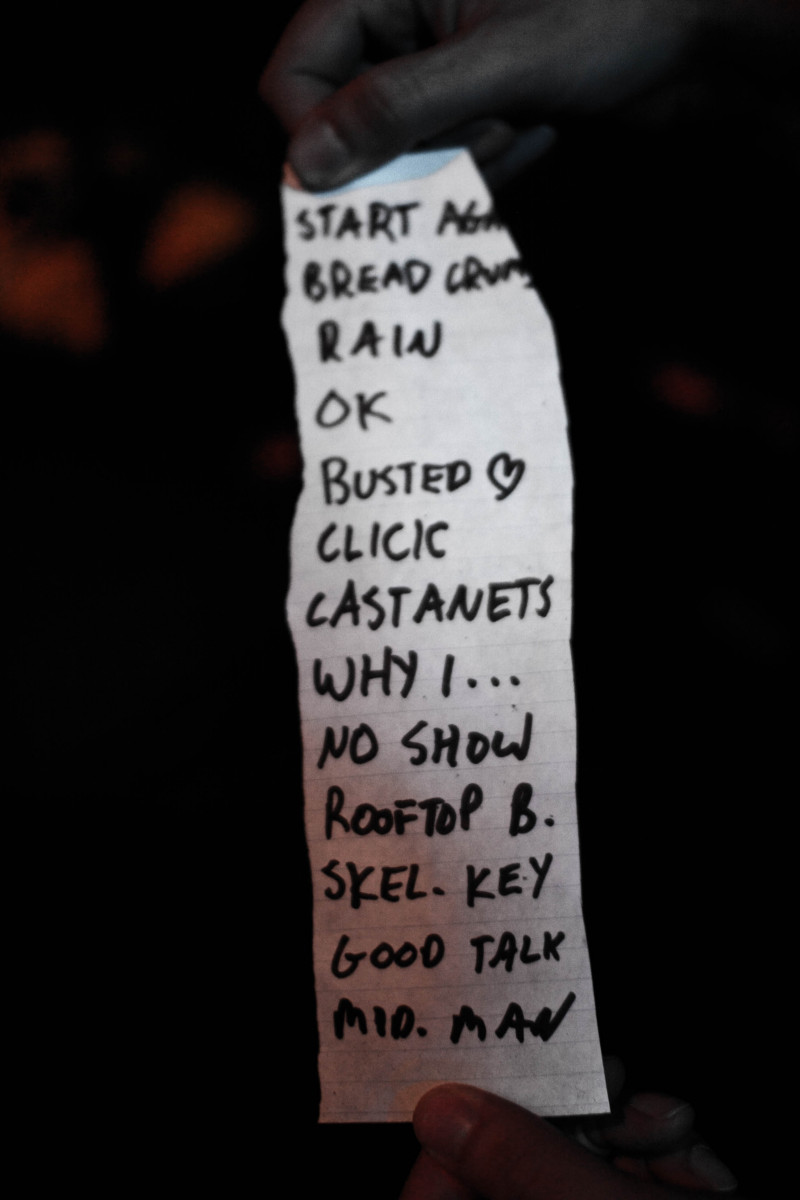 START AGA
BREAD CRUM
RAIN
OK
BUSTED ♡
CLICK
CASTANETS
WHY I...
NO SHOW
ROOFTOP B.
SKEL. KEY
GOOD TALK
MID. MAN